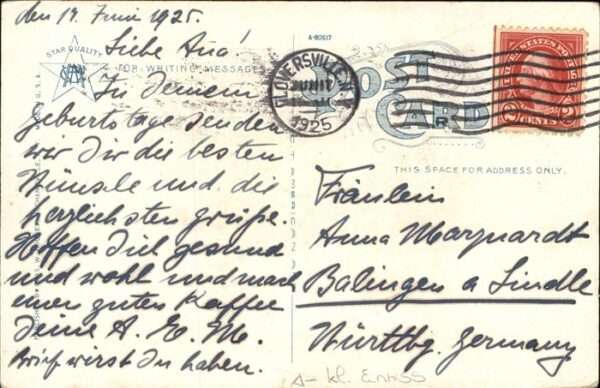 den 17. Juni 1925.
A-80617
STAR QUALITY
Liebe Ana!
GLOVERSVILLE, N.Y.
JUN 17
1925
UNITED STATES POSTAGE
2 CENTS 2
POST CARD
FOR WRITING MESSAGES
THIS SPACE FOR ADDRESS ONLY.
Zu Deinem
geburtstage senden
wir Dir die besten
Wünsche und die
herzlichsten grüße.
Hoffen Dich gesund
und wohl und mach
einen guten Kaffee
Deine A. E. M.
Brief wirst du haben.
Fräulein
Anna Marquardt
Balingen a
Württbg. Germany
A- kl.